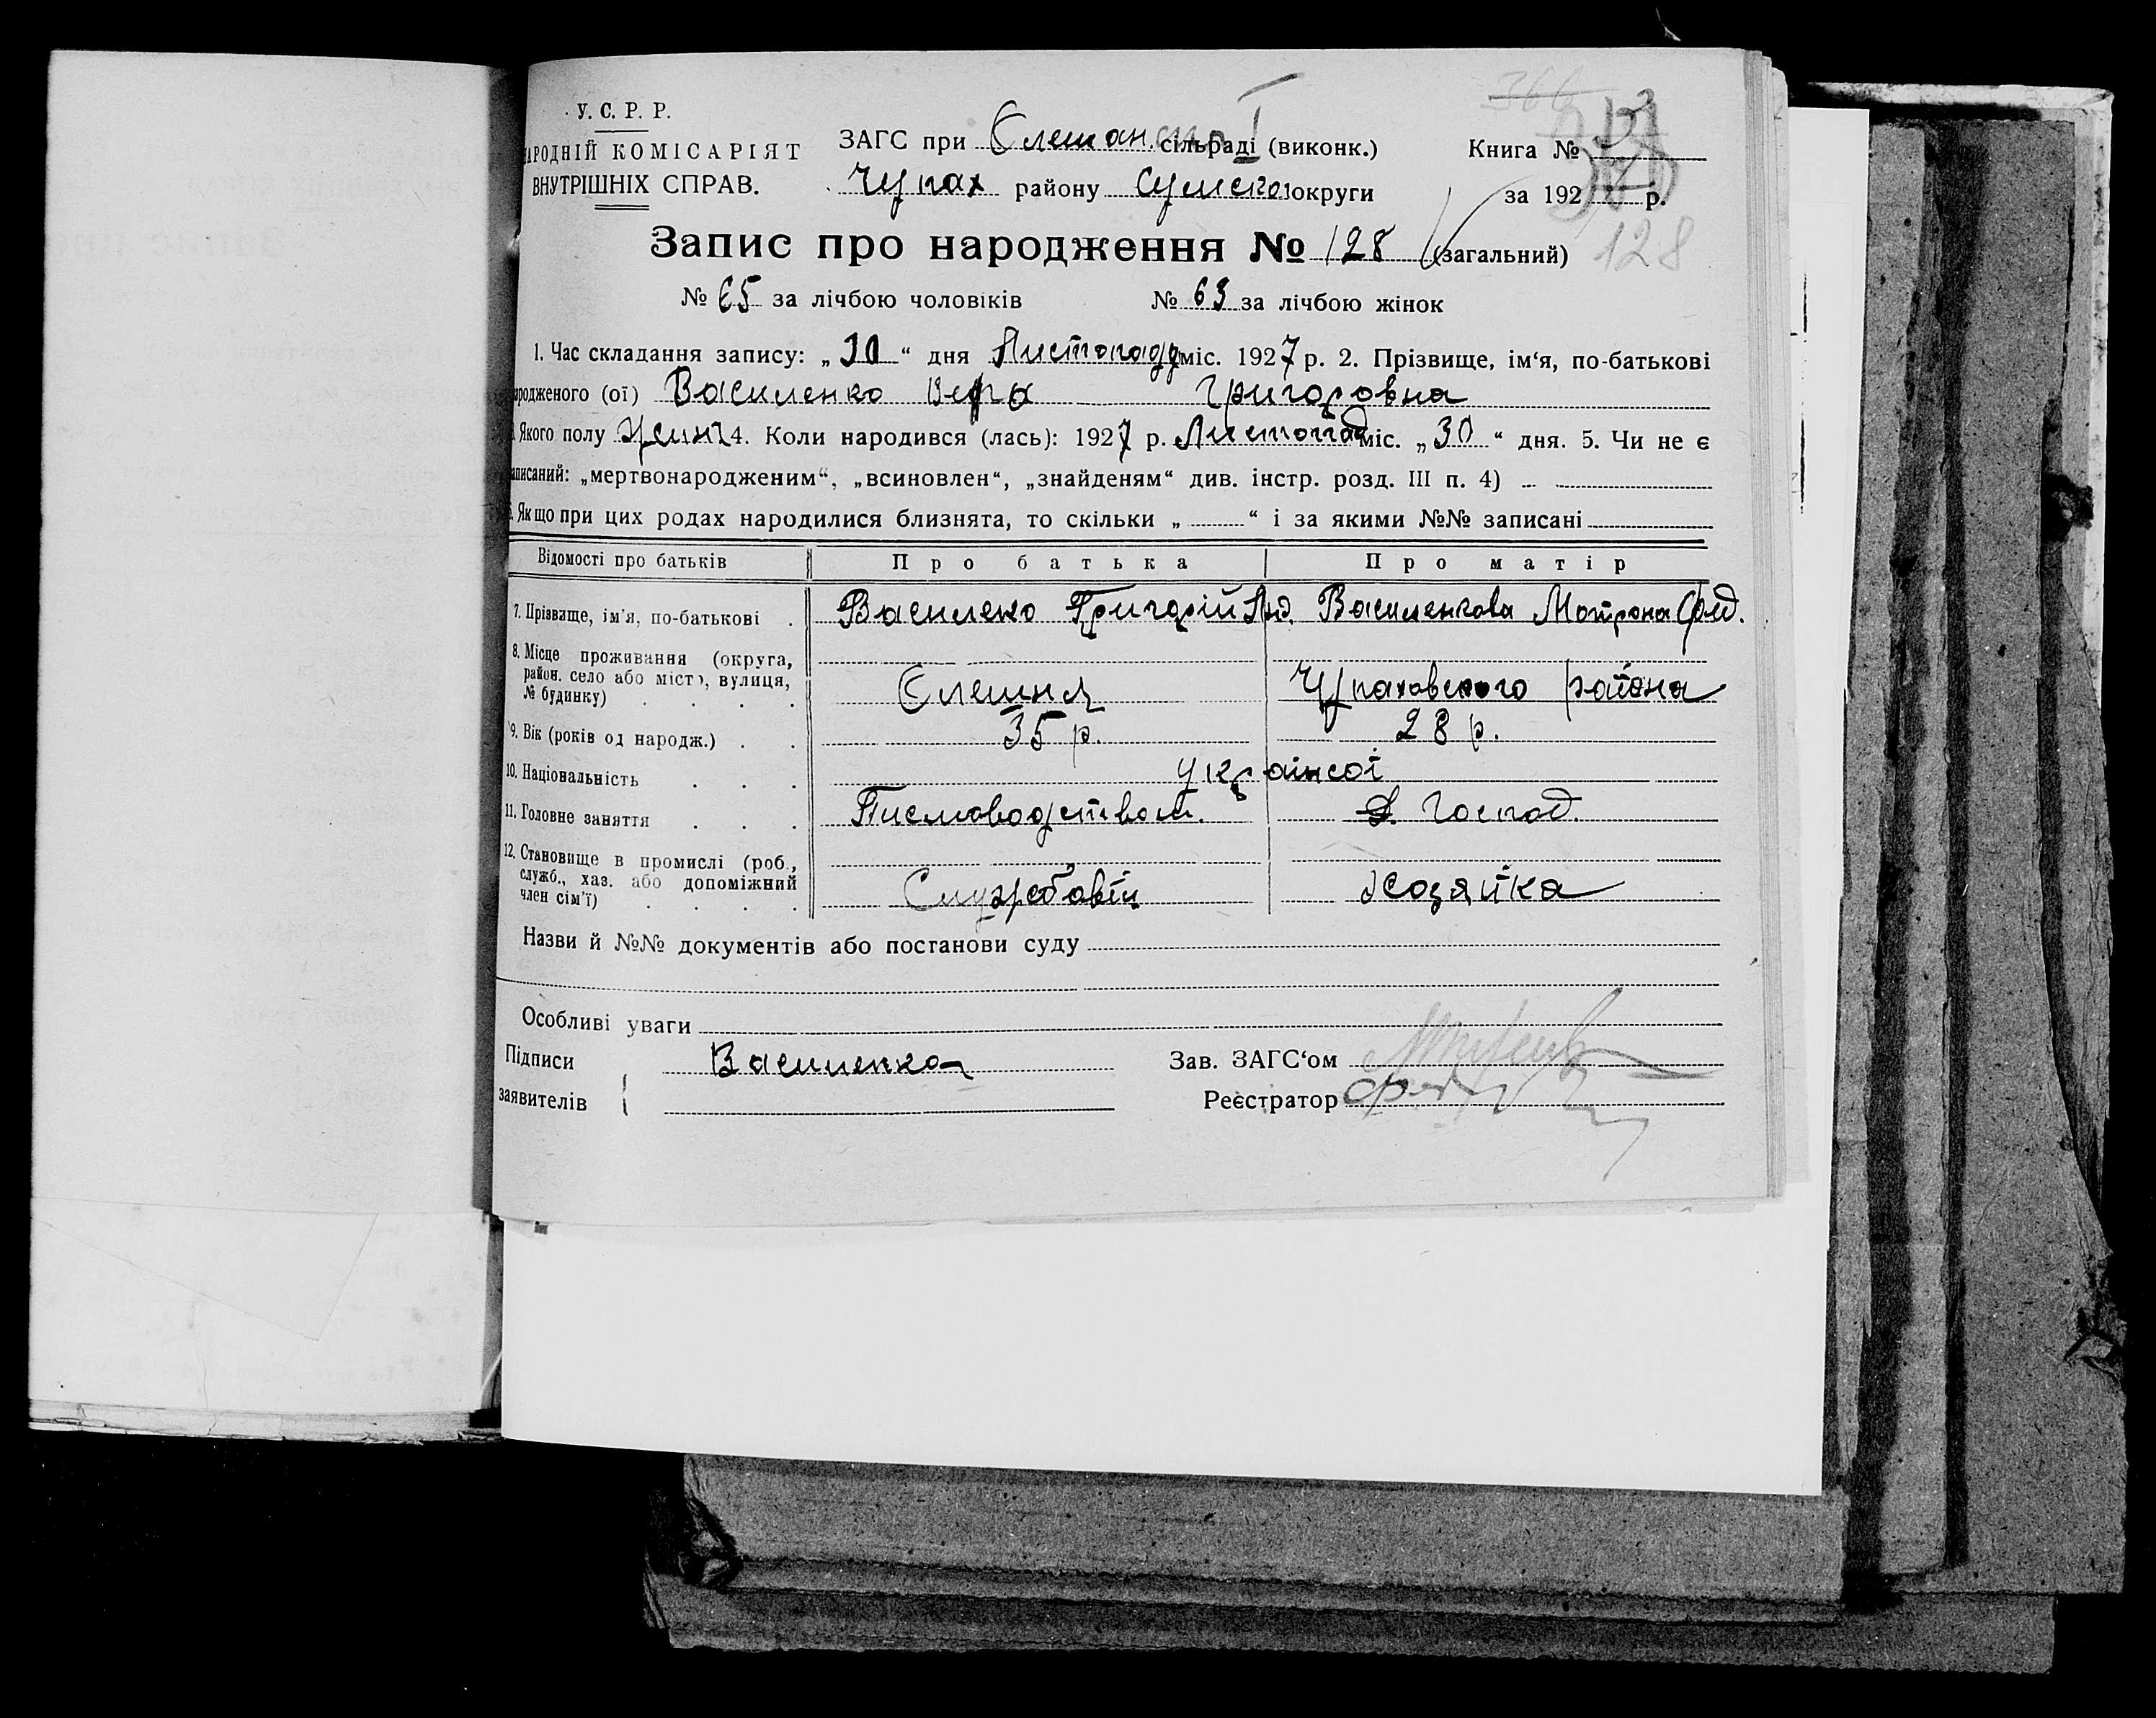 У. С. Р. Р.
НАРОДНІЙ КОМІСАРІЯТ
ВНУТРІШНІХ СПРАВ.
ЗАГС при Єлешан. сільраді (виконк.)
Чупах району Сумської округи
Книга №
за 192 р.
Запис про народження № 128 (загальний) 128
№ 65 за лічбою чоловіків № 63 за лічбою жінок
1. Час складання запису: „30“ дня Листопада міс. 1927 р. 2. Прізвище, ім‘я, по-батькові
родженого (ої) Василенко Вера Григоровна
Якого полу жіноч 4. Коли народився (лась): 1927 р. Листопад міс. „30“ дня. 5. Чи не є
записаний: „мертвонародженим“, „всиновлен“, „знайденям“ див. інстр. розд. III п. 4)
Якщо при цих родах народилися близнята, то скільки „ “ і за якими №№ записані
Відомості про батьків Про батька Про матір
7. Прізвище, ім‘я, по-батькові Василеко Григорій Анд. Василенкова Мотрона Фед.
8. Місце проживання (округа, район, село або місто, вулиця, № будинку) Єлешня Чупаховского района
9. Вік (років од народж.) 35 р. 28 р.
10. Національність українсої
11. Головне заняття Писмоводством. Д. Господ.
12. Становище в промислі (роб., служб., хаз. або допоміжний член сім‘ї) Службовій хозяйка
Назви й №№ документів або постанови суду
Особливі уваги
Підписи Василенко
заявителів
Зав. ЗАГС‘ом
Реєстратор